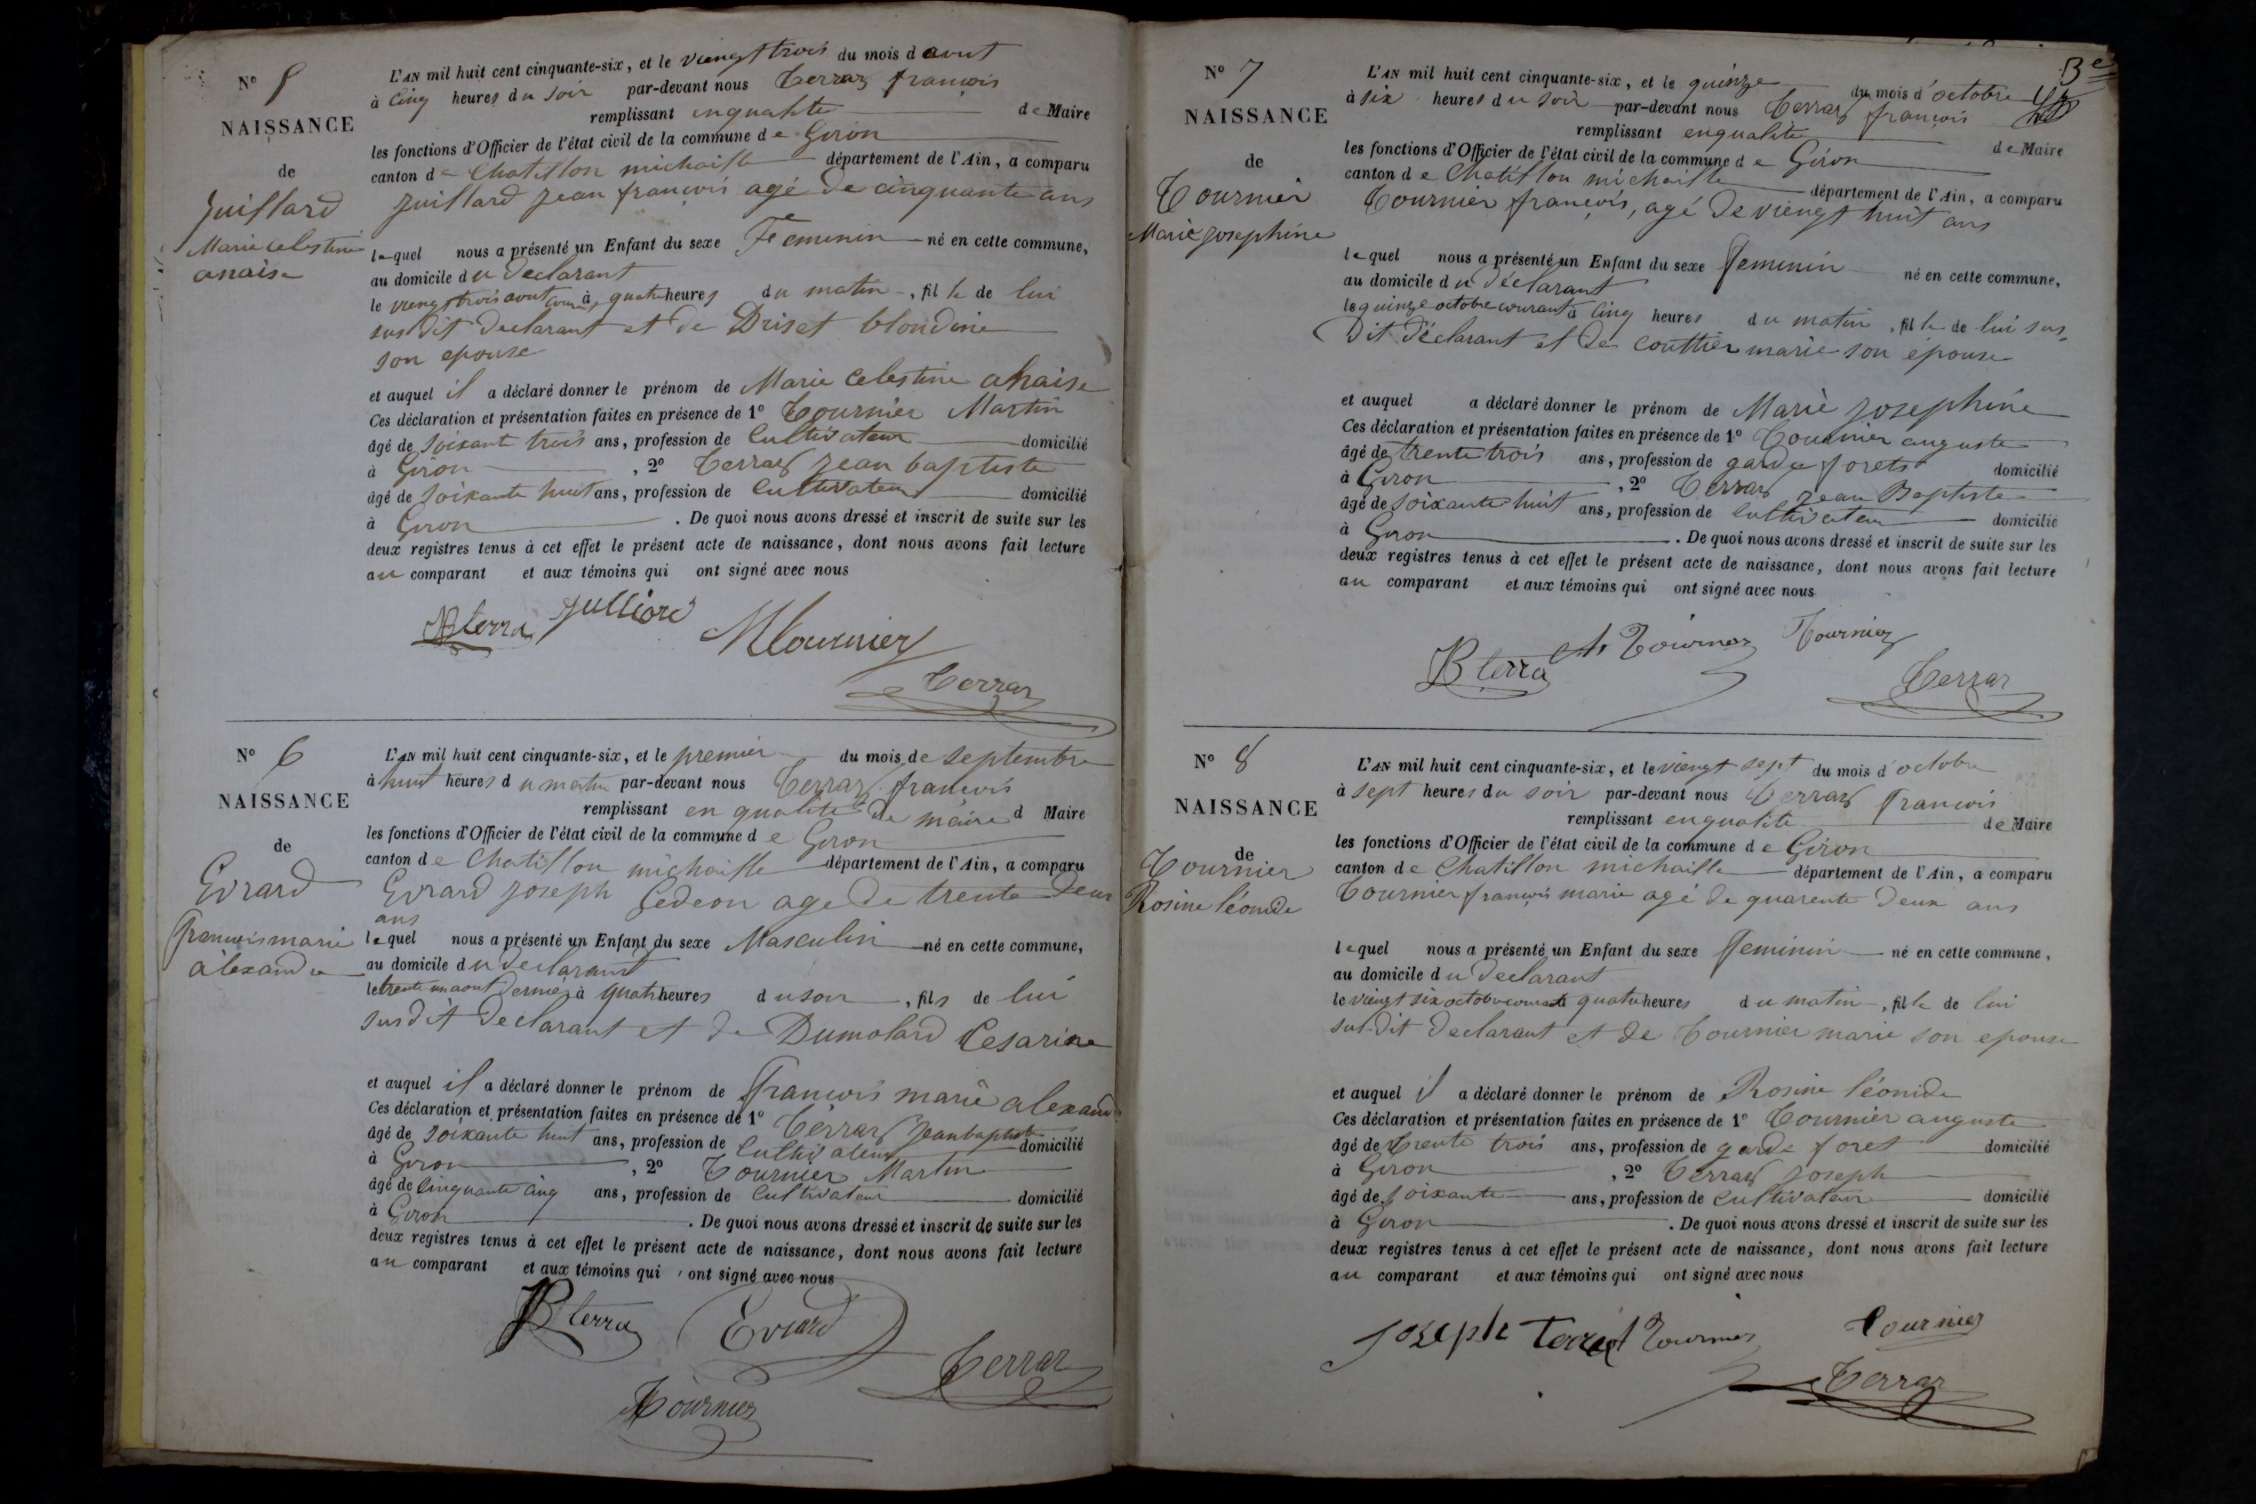 N° 5
NAISSANCE
de
Juillard
Marie celestine
anaise
L'AN mil huit cent cinquante-six, et le viengt trois du mois d avut
à Cinq heures du soir par-devant nous Terraz françois
remplissant enqualite de Maire
les fonctions d'Officier de l'état civil de la commune de Giron
canton de Chatillon michaille département de l'Ain, a comparu
Juillard jean françois agé de cinquante ans
lequel nous a présenté un Enfant du sexe Feminin né en cette commune,
au domicile du declarant
le viengt trois aout à quatre heures du matin, fille de lui
susdit declarant et de Driset blondine
son epouse
et auquel il a déclaré donner le prénom de Marie celestine anaise
Ces déclaration et présentation faites en présence de 1° Tournier Martin
âgé de soixant trois ans, profession de Cultivateur domicilié
à Giron, 2° Terraz jean baptiste
âgé de soixante huit ans, profession de Cultivateur domicilié
à Giron. De quoi nous avons dressé et inscrit de suite sur les
deux registres tenus à cet effet le présent acte de naissance, dont nous avons fait lecture
au comparant et aux témoins qui ont signé avec nous
JBterra Julliard
MTournier
Terraz
N° 6
NAISSANCE
de
Evrard
francois marie
alexandre
L'AN mil huit cent cinquante-six, et le premier du mois de septembre
à huit heures du matin par-devant nous Terraz françois
remplissant en qualité de maire d Maire
les fonctions d'Officier de l'état civil de la commune de Giron
canton de Chatillon michaille département de l'Ain, a comparu
Evrard joseph Gedeon age de trente deux
ans
lequel nous a présenté un Enfant du sexe Masculin né en cette commune,
au domicile du declarant
le trente un aout dernier à quatre heures du soir, fils de lui
susdit declarant et de Dumolard Cesarine
et auquel il a déclaré donner le prénom de francois marie alexand
Ces déclaration et présentation faites en présence de 1° Terraz jean baptiste
âgé de soixante huit ans, profession de Cultivateur domicilié
à Giron, 2° Tournier Martin
âgé de Cinquante cinq ans, profession de Cultivateur domicilié
à Giron. De quoi nous avons dressé et inscrit de suite sur les
deux registres tenus à cet effet le présent acte de naissance, dont nous avons fait lecture
au comparant et aux témoins qui ont signé avec nous
JBterra Evrard
Terraz
Tournier
N° 7
NAISSANCE
de
Tournier
Marie josephine
L'AN mil huit cent cinquante-six, et le quinze du mois d'octobre
à six heures du soir par-devant nous Terraz françois
remplissant enqualite de Maire
les fonctions d'Officier de l'état civil de la commune de Giron
canton de Chatillon michaille département de l'Ain, a comparu
Tournier françois, agé de viengt huit ans
lequel nous a présenté un Enfant du sexe feminin né en cette commune,
au domicile du déclarant
le quinze octobre courant à Cinq heures du matin, fille de lui sus,
Dit déclarant et de Couttier marie son épouse
et auquel a déclaré donner le prénom de Marie josephine
Ces déclaration et présentation faites en présence de 1° Tournier auguste
âgé de trente trois ans, profession de garde forets domicilié
à Giron, 2° Terraz jean Baptiste
âgé de soixante huit ans, profession de Cultivateur domicilié
à Giron. De quoi nous avons dressé et inscrit de suite sur les
deux registres tenus à cet effet le présent acte de naissance, dont nous avons fait lecture
au comparant et aux témoins qui ont signé avec nous
JBterra Tournier Tournier
Terraz
N° 8
NAISSANCE
de
Tournier
Rosine léonide
L'AN mil huit cent cinquante-six, et le viengt sept du mois d'octobre
à sept heures du soir par-devant nous Terraz françois
remplissant enqualite de Maire
les fonctions d'Officier de l'état civil de la commune de Giron
canton de Chatillon michaille département de l'Ain, a comparu
Tournier françois marie agé de quarente deux ans
lequel nous a présenté un Enfant du sexe feminin né en cette commune,
au domicile du declarant
le viengt six octobre courant à quatre heures du matin, fille de lui
sus-dit declarant et de Tournier marie son epouse
et auquel il a déclaré donner le prénom de Rosine léonide
Ces déclaration et présentation faites en présence de 1° Tournier auguste
âgé de trente trois ans, profession de garde foret domicilié
à Giron, 2° Terraz joseph
âgé de soixante ans, profession de Cultivateur domicilié
à Giron. De quoi nous avons dressé et inscrit de suite sur les
deux registres tenus à cet effet le présent acte de naissance, dont nous avons fait lecture
au comparant et aux témoins qui ont signé avec nous
Joseph Terraz Tournier Tournier
Terraz